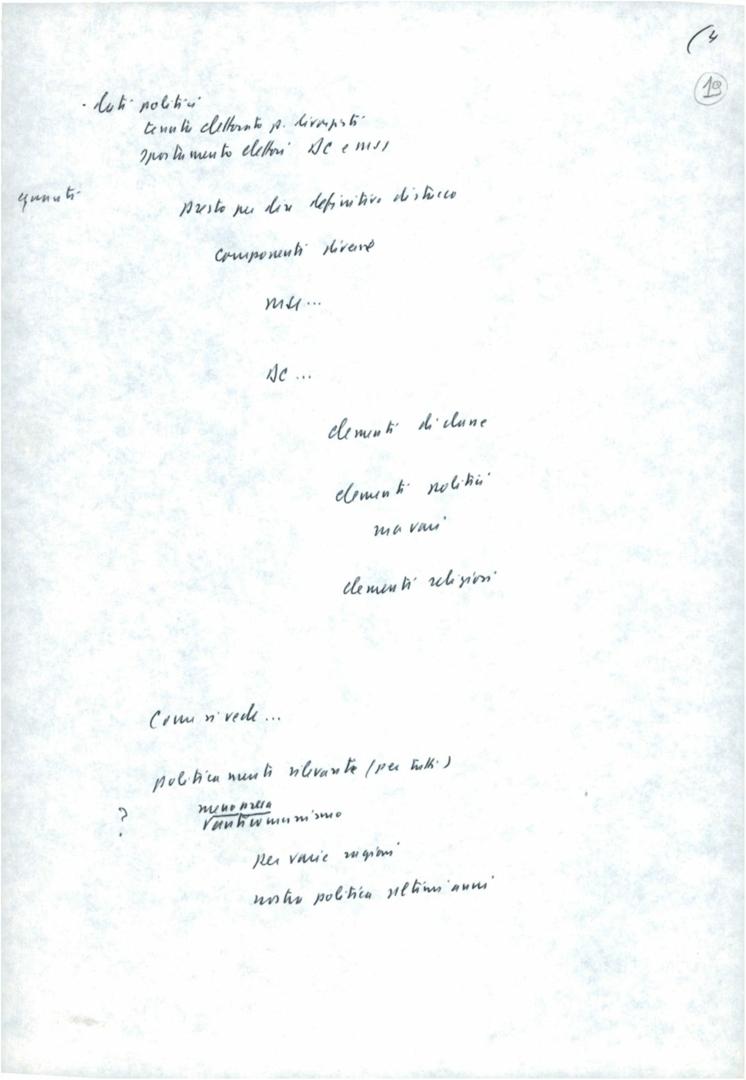 (4
10
- dati politici
tenuta elettorato p. divorzisti
spostamento elettori DC e MSI
quanti
presto per dire definitivo distacco
componenti diverse
MSI...
DC...
elementi di classe
elementi politici
ma vari
elementi religiosi
Come si vede...
politicamente rilevante (per tutti)
meno presa
?
anticomunismo
per varie ragioni
nostra politica ultimi anni